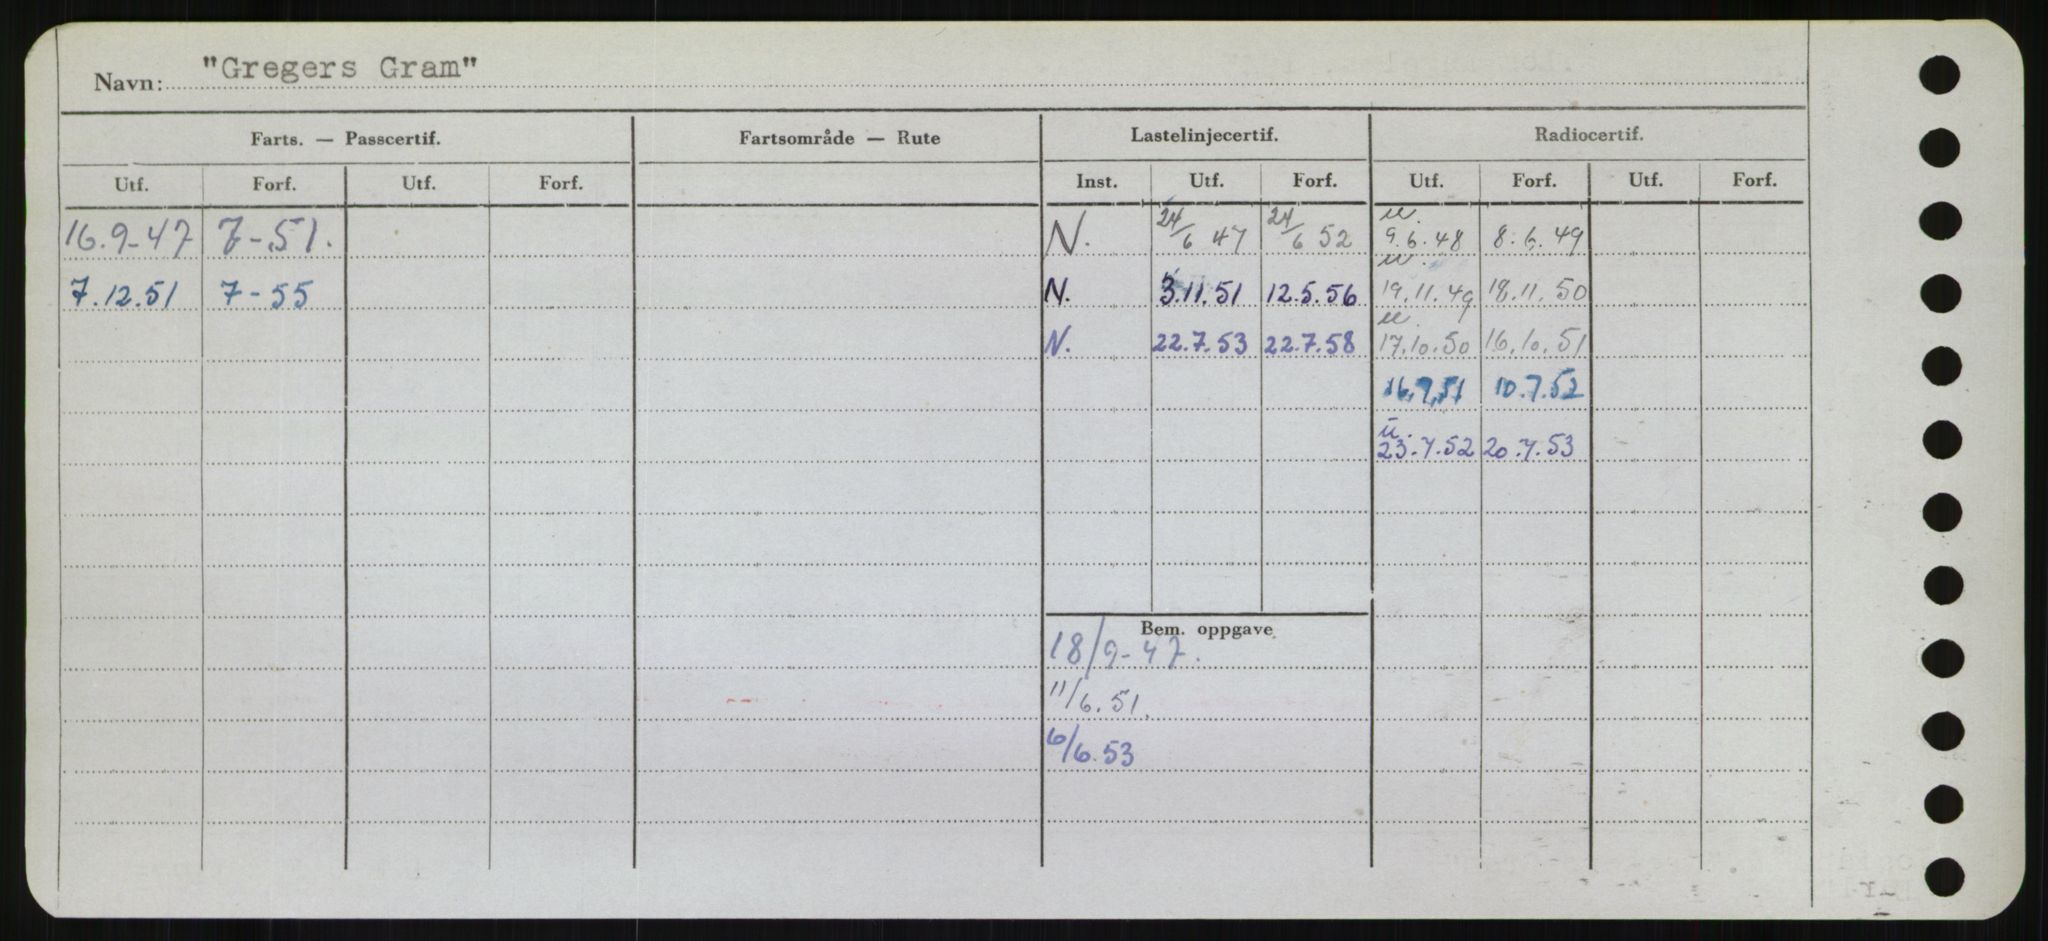 Navn: "Gregers Gram"
Farts. — Passcertif. Fartsområde — Rute Lastelinjecertif. Radiocertif.
Utf. Forf. Utf. Forf. Inst. Utf. Forf. Utf. Forf. Utf. Forf.
16.9-47 7-51. N. 24/6 47 24/6 52 u. 9.6.48 8.6.49
7.12.51 7-55 N. 3.11.51 12.5.56 u. 19.11.49 18.11.50
N. 22.7.53 22.7.58 u. 17.10.50 16.10.51
16.7.51 10.7.52
u. 23.7.52 20.7.53
Bem. oppgave
18/9-47.
11/6.51.
6/6.53